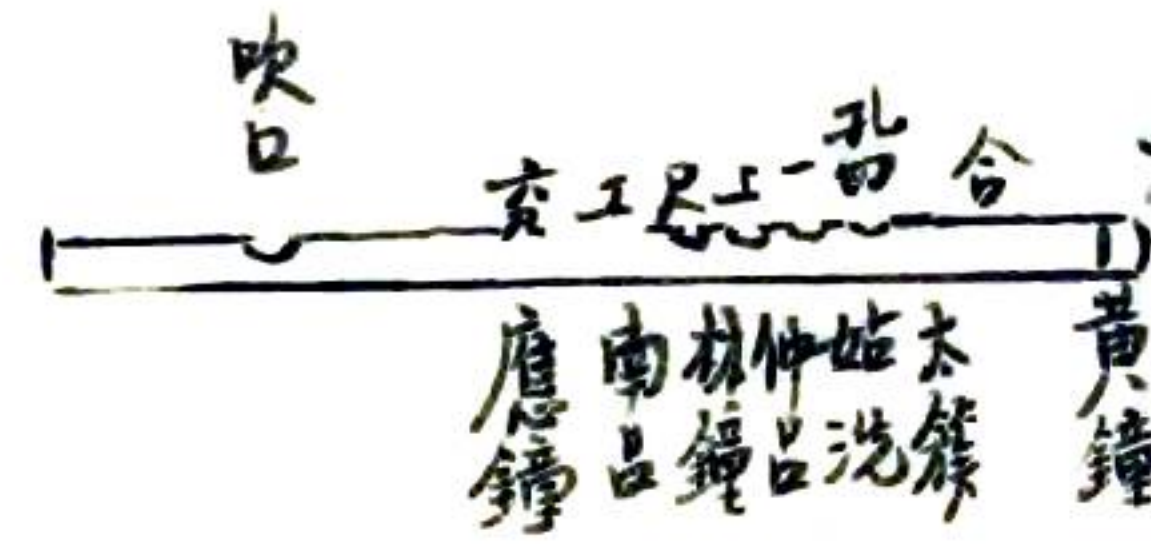 吹口
孔
工尺上一四合
應鐘
南呂
林鐘
仲呂
姑洗
太簇
黃鐘